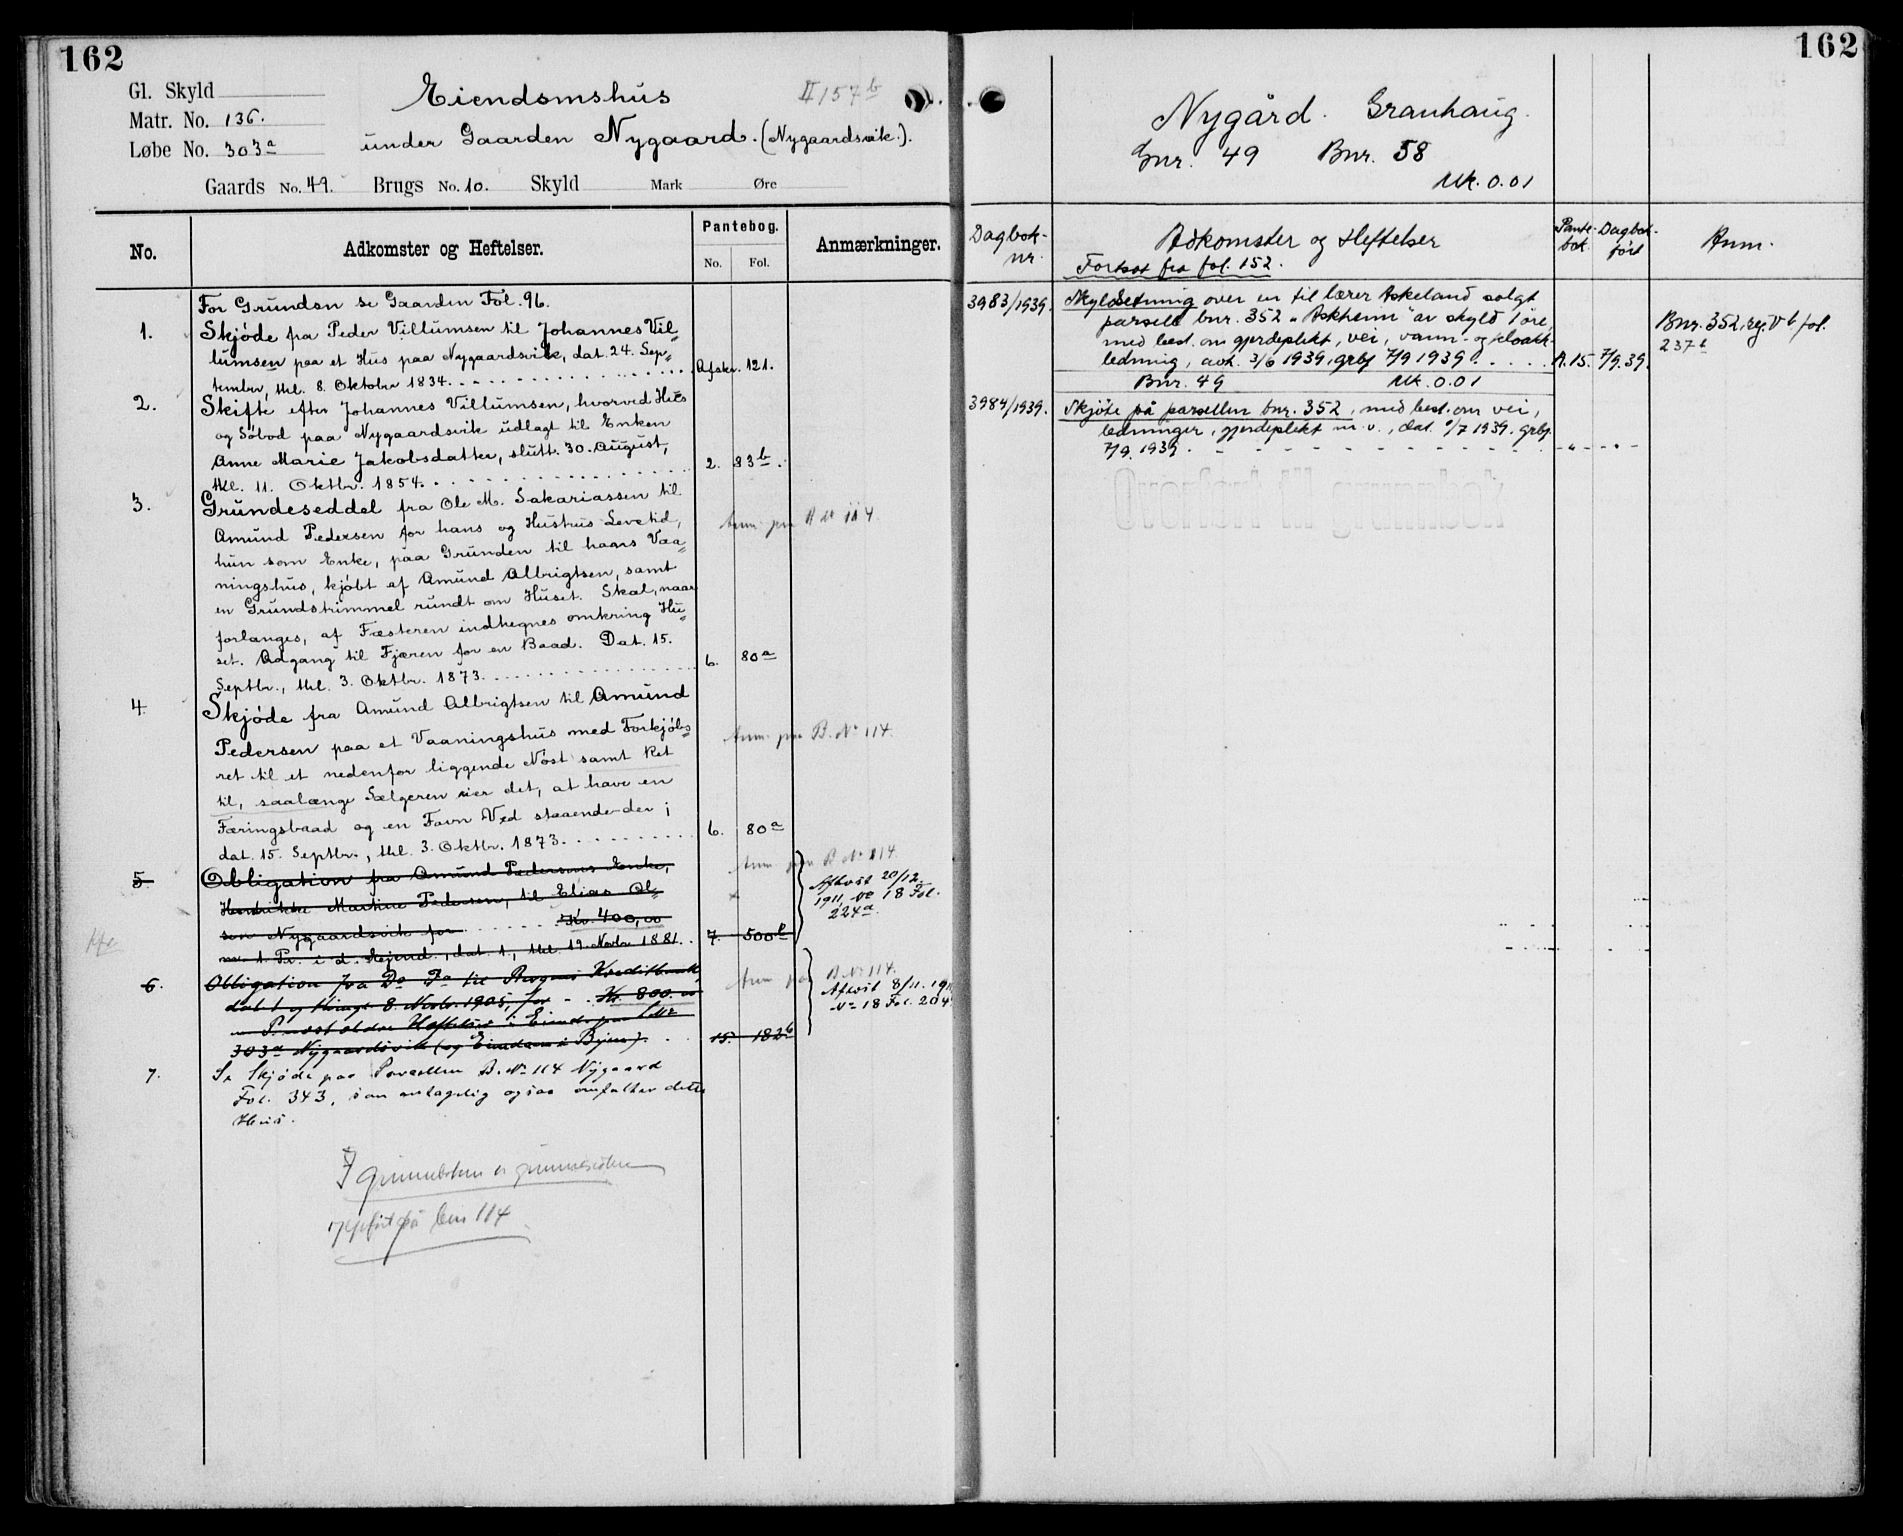 162
Gl. Skyld
Matr. No. 136.
Løbe No. 303a
Eiendomshus II 157b
under Gaarden Nygaard. (Nygaardsvik.).
Gaards No. 49. Brugs No. 10. Skyld Mark Øre
No. Adkomster og Heftelser. Pantebog. No. Fol. Anmærkninger.
For Grunden se Gaarden Fol. 96.
1. Skjøde fra Peder Villumsen til Johannes Vil=
lumsen paa et Hus paa Nygaardsvik, dat. 24. Sep=
tember, thl. 8. Oktober 1834. Afskr. 121.
2. Skifte efter Johannes Villumsen, hvorved Hus
og Søbod paa Nygaardsvik udlagt til Enken
Anne Marie Jakobsdatter, slutt. 30. August,
thl. 11. Oktbr. 1854. 2. 83b.
3. Grundeseddel fra Ole M. Sakariassen til
Amund Pedersen for hans og Hustrus Levetid, Anm. paa B. No 114.
hun som Enke, paa Grunden til hans Vaa=
ningshus, kjøbt af Amund Albrigtsen, samt
en Grundstrimmel rundt om Huset. Skal, naar
forlanges, af Fæsteren indhegnes omkring Hu=
set. Adgang til Fjæren for en Baad. Dat. 15.
Septbr., thl. 3. Oktbr. 1873. 6. 80a
4. Skjøde fra Amund Albrigtsen til Amund
Pedersen paa et Vaaningshus med Forkjøbs= Anm. paa B. No 114.
ret til et nedenfor liggende Nøst samt Ret
til, saalænge Sælgeren eier det, at have en
Færingsbaad og en Favn Ved staaende der;
dat. 15. Septbr., thl. 3. Oktbr. 1873. 6. 80a
5 Obligation fra Amund Pedersens Enke, Anm. paa B. No 114.
Hendrikke Martine Pedersen, til Elias Ol= Aflyst 20/12.
sen Nygaardsvik for Kr. 400,00 1911, No 18 Fol. 224a.
m. 1. Pr. i d. Eiend., dat. 1., thl. 19. Novbr 1881. 7. 500b
6. Obligation fra Do Fa til Bergens Kreditbank, Anm. paa B. No 114.
dat. 1 og thingl. 8. Novbr. 1905, for Kr. 800.00 Aflyst 8/11. 1911
m. P. næst ældre Heftelser i Eiend. paa Lno No 18 Fol. 204
303a Nygaardsvik (og Eiendom i Byen). 15. 182b
7. Se Skjøde paa Parcellen B. No 114 Nygaard
Fol. 343, som antagelig ogsaa omfatter dette
Hus.
I grunnboken er grunnsiden
oppført på bnr 114
162
Nygård. Granhaug.
Gnr. 49 Bnr. 58
Mk. 0.01
Dagbok-nr. Adkomster og Heftelser Pante-bok. Dagbok-ført Anm.
Fortsat fra fol. 152.
3983/1939. Skyldsetning over en til lærer Askeland solgt
parsell bnr. 352 "Askheim" av skyld 1 øre,
med best. om gjerdeplikt, vei, vann- og kloakk-
ledning, avh. 3/6 1939, grbf 7/9 1939. A. 15. 7/9. 39.
Bnr. 352, reg. V b fol.
237b
Bnr. 49 Mk. 0.01
3984/1939. Skjøte på parsellen bnr. 352, med best. om vei,
ledninger, gjerdeplikt m.v., dat. /7 1939. grbf.
7/9. 1939. - " -
Overført til grunnbok